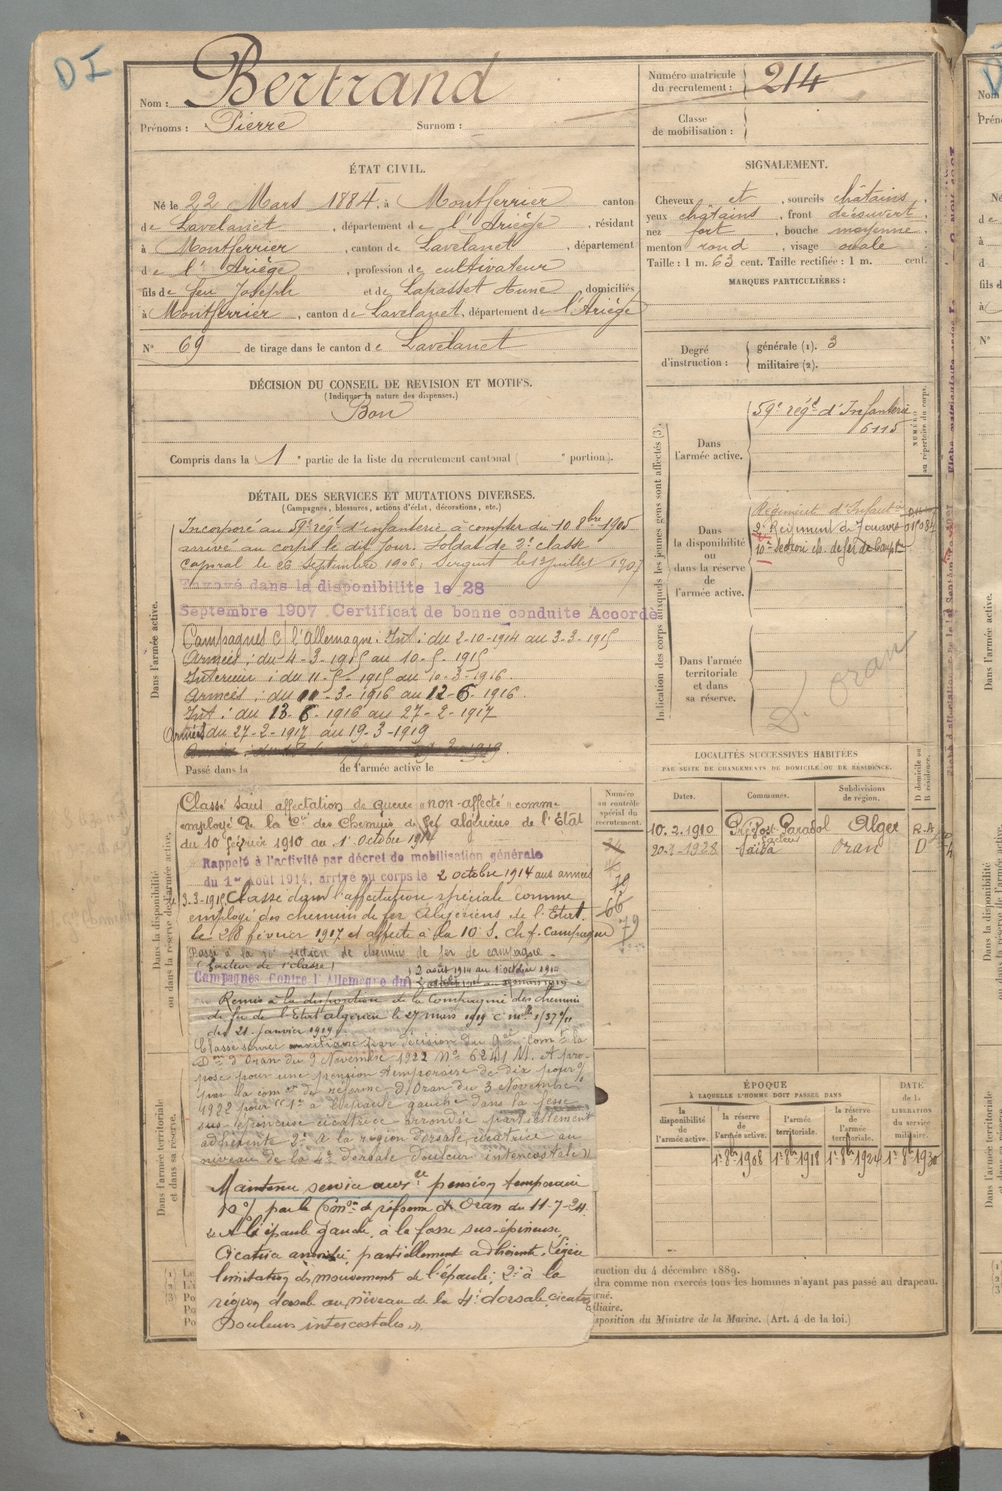 DI
Nom : Bertrand
Prénoms : Pierre Surnom :
Numéro matricule du recrutement : 214
Classe de mobilisation :
ÉTAT CIVIL.
Né le 22 Mars 1884, à Montferrier canton
de Lavelanet, département de l'Ariège, résidant
à Montferrier, canton de Lavelanet, département
de l'Ariège, profession de cultivateur
fils de feu Joseph et de Lapasset Anne domiciliés
à Montferrier, canton de Lavelanet, département de l'Ariège
N° 69 de tirage dans le canton de Lavelanet
SIGNALEMENT.
Cheveux et, sourcils châtains,
yeux châtains, front découvert,
nez fort, bouche moyenne,
menton rond, visage ovale
Taille : 1 m. 63 cent. Taille rectifiée : 1 m. cent.
MARQUES PARTICULIÈRES :
Degré d'instruction : générale (1). 3
militaire (2).
DÉCISION DU CONSEIL DE REVISION ET MOTIFS.
(Indiquer la nature des dispenses.)
Bon
Compris dans la 1e partie de la liste du recrutement cantonal ( e portion).
DÉTAIL DES SERVICES ET MUTATIONS DIVERSES.
(Campagnes, blessures, actions d'éclat, décorations, etc.)
Dans l'armée active.
Incorporé au 59e régt d'infanterie à compter du 10 8bre 1905
arrivé au corps le dit jour. Soldat de 2e classe
caporal le 26 Septembre 1906, Sergent le 13 juillet 1907
Envoyé dans la disponibilite le 28
Septembre 1907 Certificat de bonne conduite Accordé
Campagnes c/ l'Allemagne : Int : du 2-10-1914 au 3-3-1915
Armées : du 4-3-1915 au 10-5-1915
Intérieur : du 11-5-1915 au 10-3-1916.
Armées : du 11-3-1916 au 12-6-1916.
Int : du 13-6-1916 au 27-2-1917
Armées du 27-2-1917 au 19-3-1919
Passé dans la de l'armée active le
Dans la disponibilité ou dans la réserve de l'armée active.
Classé sans affectation de guerre "non-affecté" comme
employé de la Cie des Chemins de fer algériens de l'État
du 10 février 1910 au 1 Octobre 1914
Rappelé à l'activité par décret de mobilisation générale
du 1er Août 1914, arrivé au corps le 2 octobre 1914 aux armées
le 3-3-1915 Classé dans l'affectation spéciale comme
employé des chemins de fer Algériens de l'Etat.
le 28 février 1917 et affecté à la 10e S. ch. f. Campagne
Passé à la 10e section de chemins de fer de campagne.
(facteur de 1e classe)
Campagnes Contre l'Allemagne du 2 août 1914 au 1 octobre 1914
Remis à la disposition de la Compagnie des chemins
de fer de l'Etat algérien le 27 mars 1919
du 21 Janvier 1919
Classé service auxiliaire par décision du Gal Comt la
Don d'Oran du 9 Novembre 1922 No 6241 M. A pro-
posé pour une pension temporaire de dix pour %
par la comon de réforme d'Oran du 3 Novembre
1922 pour "1° à l'épaule gauche dans la fosse
sus-épineuse cicatrice arrondie partiellement
adhérente 2° à la région dorsale cicatrice au
niveau de la 4e dorsale douleur intercostale"
Maintenu service auxre pension temporaire
10% par la Comon de réforme d'Oran du 11-7-24
A l'épaule gauche, à la fosse sus-épineuse,
Cicatrice arrondie, partiellement adhérente. Légère
limitation des mouvements de l'épaule; 2° à la
région dorsale au niveau de la 4e dorsale, cicatrice
Douleurs intercostales ».
Dans l'armée territoriale et dans sa réserve.
Numéro au contrôle spécial du recrutement.
66
79
Indication des corps auxquels les jeunes gens sont affectés (3).
NUMÉRO au répertoire du corps.
Dans l'armée active.
59e régt d'Infanterie
6115
Dans la disponibilité ou dans la réserve de l'armée active.
Régiment d'Infanterie
2e Régiment de Zouaves
10e Section ch. de fer de Campe
Dans l'armée territoriale et dans sa réserve.
D. Oran
LOCALITÉS SUCCESSIVES HABITÉES
PAR SUITE DE CHANGEMENTS DE DOMICILE OU DE RÉSIDENCE.
Dates. Communes. Subdivisions de région. D domicile ou R résidence.
10.2.1910 Prévost-Paradol Alger R.A
facteur
1928 Saïda Oran D
ÉPOQUE
À LAQUELLE L'HOMME DOIT PASSER DANS
la disponibilité de l'armée active.
la réserve de l'armée active.
l'armée territoriale.
la réserve de l'armée territoriale.
DATE de la LIBÉRATION du service militaire.
1r 8bre 1908 1r 8bre 1918 1r 8bre 1924 1r 8bre 1930
ruction du 4 décembre 1889.
dra comme non exercés tous les hommes n'ayant pas passé au drapeau.
urné.
iliaire.
sposition du Ministre de la Marine. (Art. 4 de la loi.)